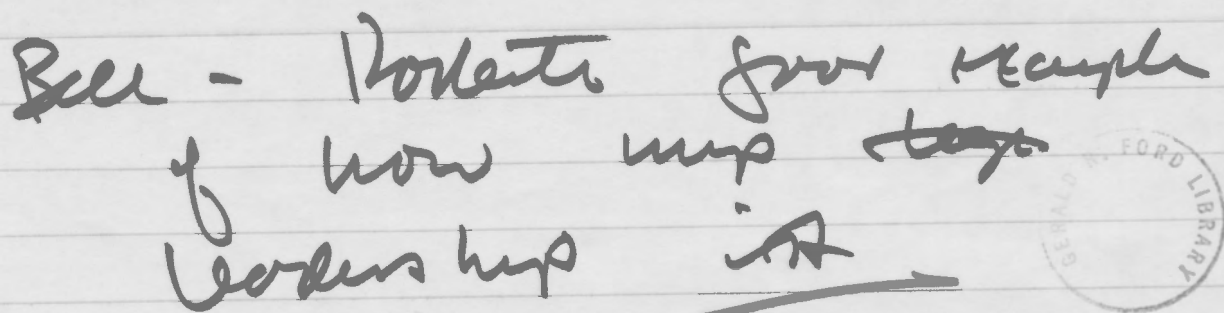 Bill - Rockefeller good example
of how imp
leadership is
GERALD R. FORD LIBRARY